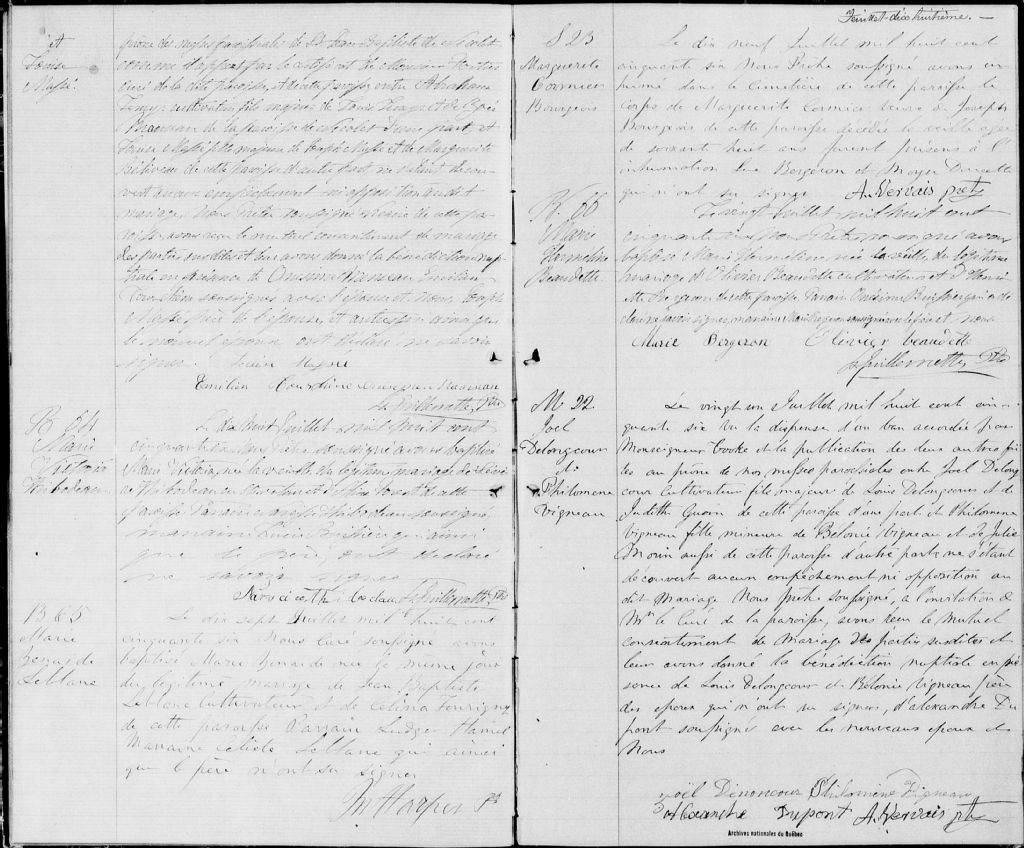 et
Louise
Massé.
prône des messes paroissiales de St Jean Baptiste de Nicolet
comme il appert par le certificat de Monsieur
curé de la dite paroisse, et de cette paroisse, entre Abraham
cultivateur, fils majeur de Louis et de
de la paroisse de Nicolet d'une part, et
Louise Massé fille majeure de Joseph Massé et de Marguerite
Béliveau de cette paroisse d'autre part ne s'étant décou-
vert aucun empêchement ni opposition au dit
mariage, Nous Prêtre soussigné Vicaire de cette pa-
roisse avons reçu le mutuel consentement de mariage
des parties susdites et leur avons donné la bénédiction nup-
tiale en présence de Onésime Emilien
Tourtellier soussignés avec l'épouse et Nous, Joseph
Massé père de l'épouse, et autres qui ainsi que
le nouvel époux ont déclaré ne savoir
signer. Louise Massé
Emilien
L. P. Guillemette, Ptre
B. 64
Marie
Victoria
Thibodeau
Le dix huit Juillet mil huit cent
cinquante six, Nous Prêtre soussigné avons baptisé
Marie Victoria, née la veille du légitime mariage de
Thibodeau cultivateur et de de cette
paroisse Parrain Narcisse Thibodeau soussigné
marraine Lucie Pénitière qui ainsi
que le père ont déclaré
ne savoir signer
Narcice Thiboclau L. P. Guillemette, Ptre
B 65
Marie
Zenaide
Leblanc
Le dix sept Juillet mil huit cent
cinquante six Nous Curé soussigné avons
baptisé Marie Zenaide née le même jour
du légitime mariage de Jean Baptiste
Leblanc Cultivateur, et de Célina Tourigny
de cette paroisse Parrain Ludger Hamel
Marraine Céleste Leblanc qui ainsi
que le père n'ont su signer
Harper Pt
Feuillet dix huitième. —
S 25
Marguerite
Cormier
Bourgeois
Le dix neuf Juillet mil huit cent
cinquante six Nous Prêtre soussigné avons in-
humé dans le Cimetière de cette paroisse le
corps de Marguerite Cormier veuve de Joseph
Bourgeois de cette paroisse décédée la veille agée
de soixante huit ans furent présens à l'
inhumation Luc Bergeron et Moyse Doucette
qui n'ont su signer A. Gervais ptre
B. 66
Marie
Herméline
Beaudette
Le vingt Juillet mil huit cent
cinquante six Nous Prêtre soussigné avons
baptisé Marie Herméline, née la veille, du légitime
mariage d'Olivier Beaudette cultivateur et d'Henri-
ette Bergeron de cette paroisse Parrain Onésime qui a dé-
claré ne savoir signer, marraine Marie Bergeron soussignée avec le père et nous
Marie Bergeron Olivier beaudette
L. P. Guillemette, Ptre
M 22
Joel
Delongcour
et
Philomene
Vigneau
Le vingt un Juillet mil huit cent cin-
quante six Vu la dispense d'un ban accordée par
Monseigneur Cooke et la publication des deux autres fai-
tes au prone de nos messes paroissiales entre Joel Delong
cour Cultivateur fils majeur de Louis Delongcour et de
Judith Guérin de cette paroisse d'une part et Philomene
Vigneau fille mineure de Bélonie Vigneau et de Julie
Morin aussi de cette paroisse d'autre part ne s'étant
découvert aucun empêchement ni opposition au
dit Mariage Nous Prêtre soussigné, à l'invitation de
Mr le Curé de la paroisse, avons reçu le Mutuel
consentement de Mariage des parties susdites et
leur avons donné la bénédiction nuptiale en pré-
sence de Louis Delongcour et Bélonie Vigneau pères
des époux qui n'ont su signer, d'Alexandre Du
pont soussigné avec les nouveaux époux et
Nous
Joël Denoncour Philomène Vigneau
Alexandre Dupont A. Gervais ptre
Archives nationales du Québec